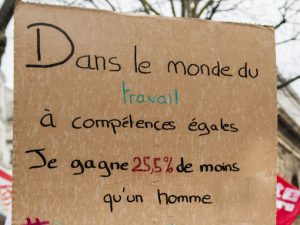 Dans le monde du
travail
à compétences égales
Je gagne 25,5% de moins
qu'un homme